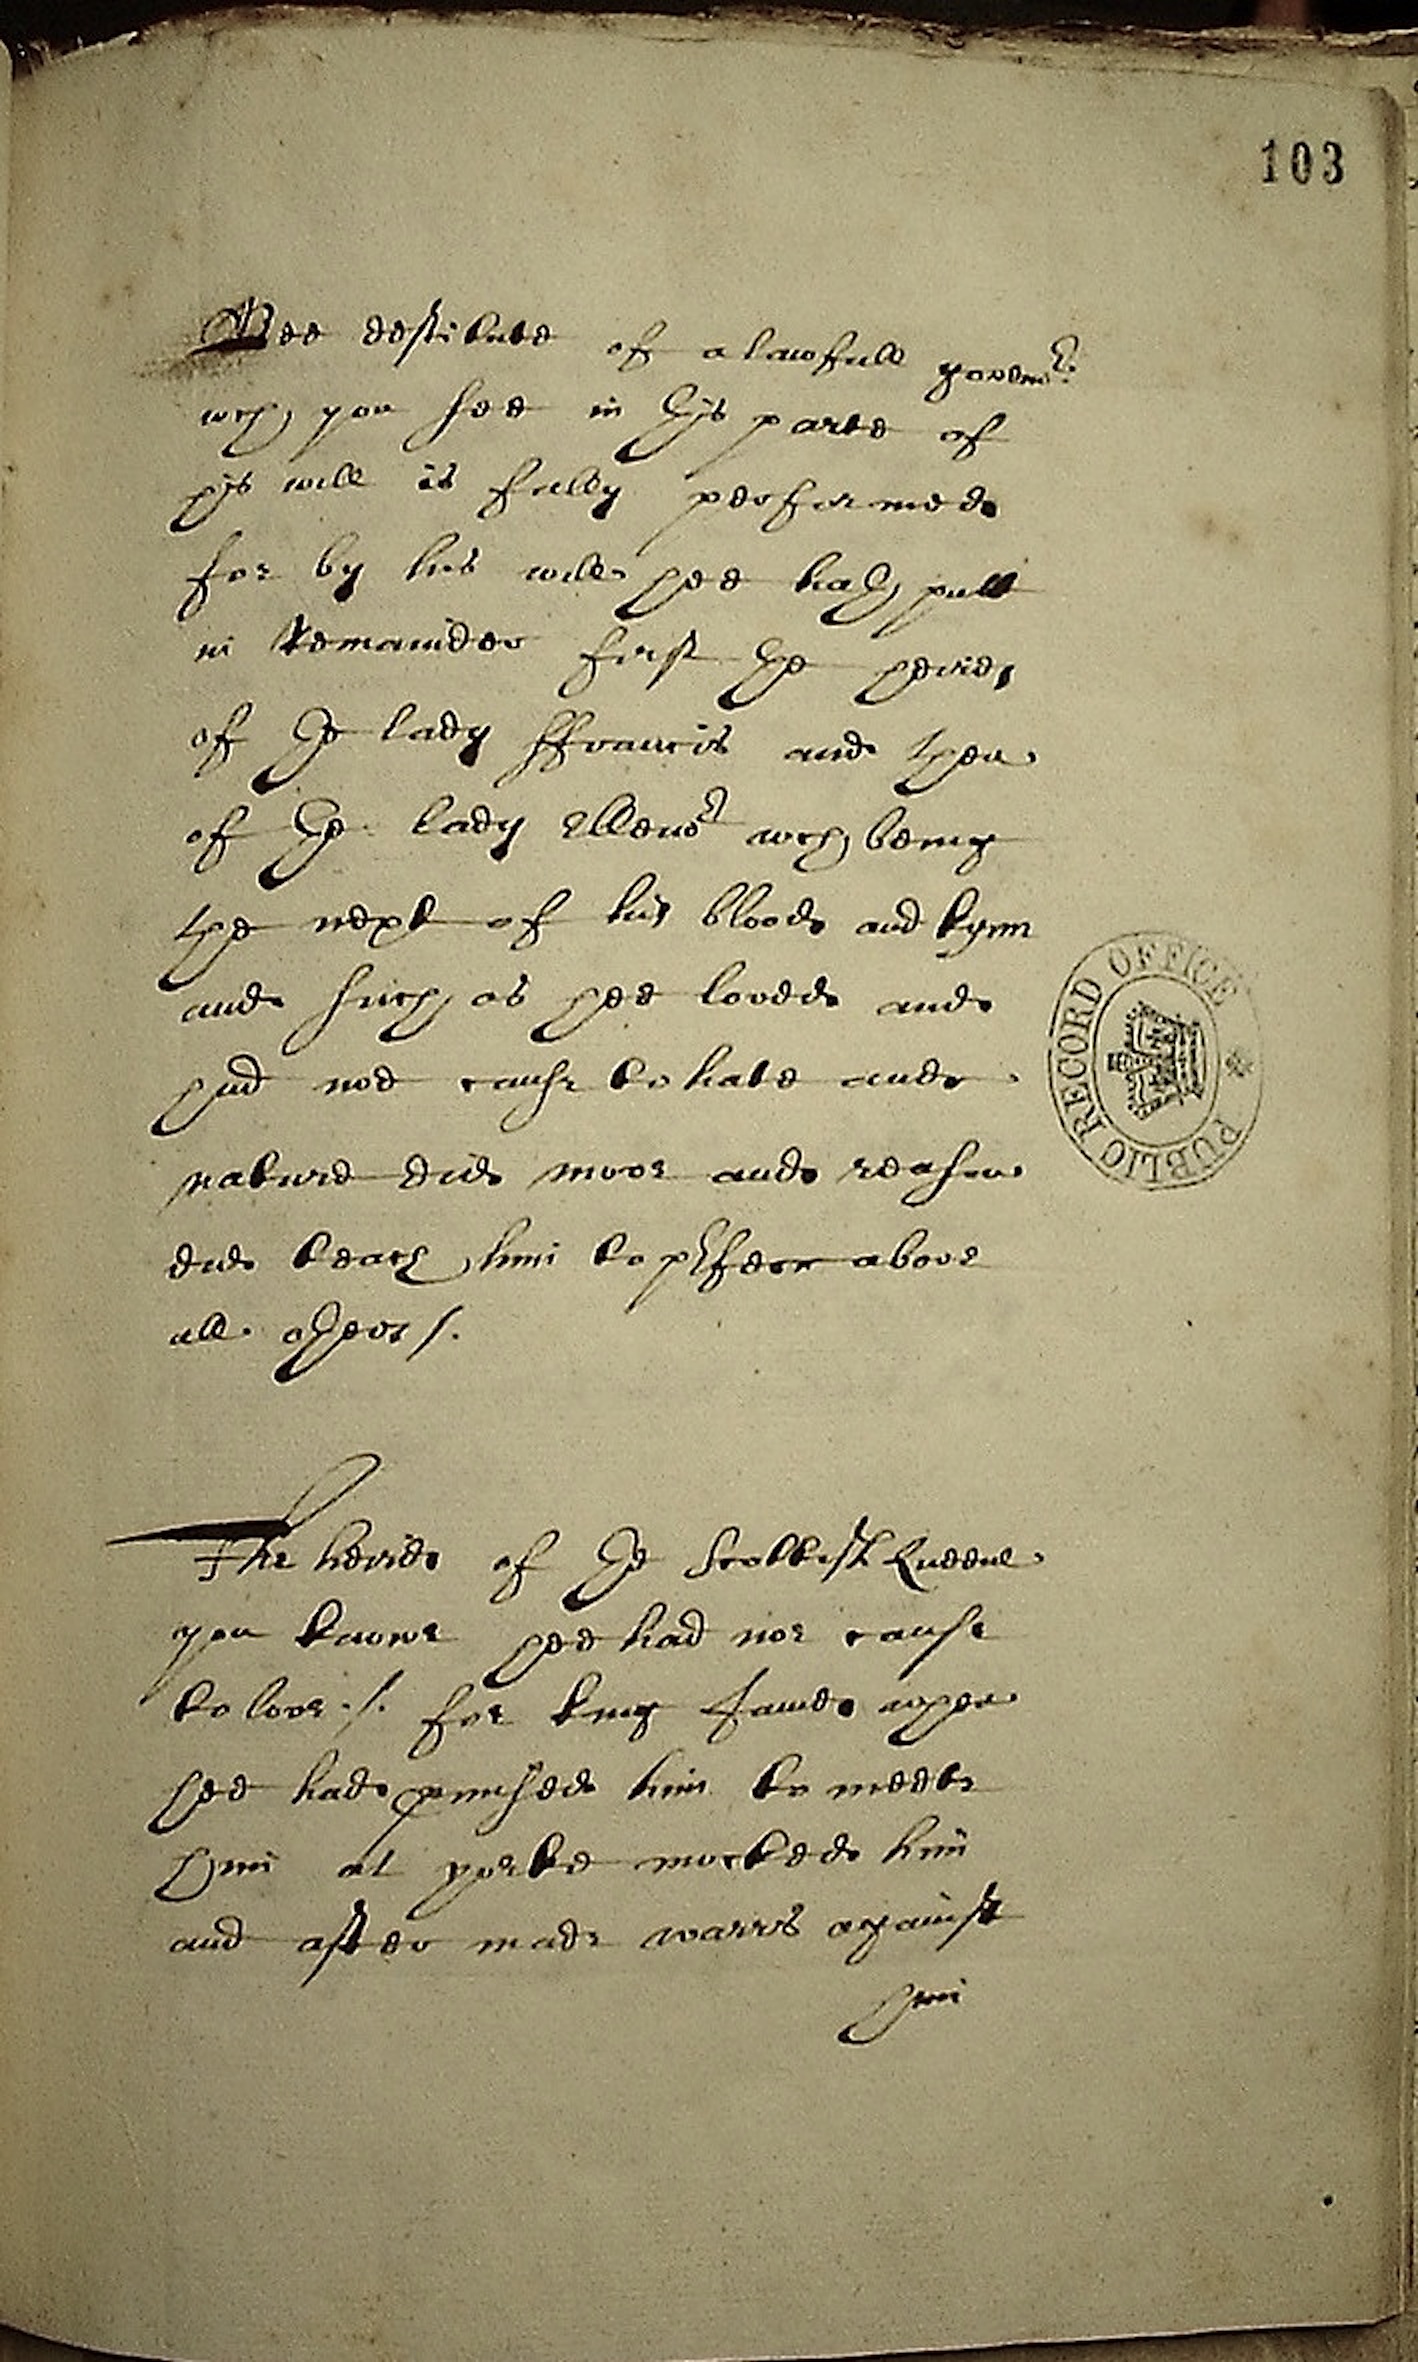 103
Bee destitute of a lawfull gover
wch you see in this parte of
his will is fully performed
for by his will hee hath putt
in Remainder first the heires
of the lady ffrauncis and then
of the lady Ellenor wch being
the next of his blood and kynn
and such as hee loved and
had noe cause to hate and
nature did move and reason
did teach him to pfer above
all others /.
The heires of the Scottish Queene
you knowe hee had noe cause
to love ./. for king James when
hee had promised him to meete
him at yorke mocked him
and after made warrs against
him
PUBLIC RECORD OFFICE